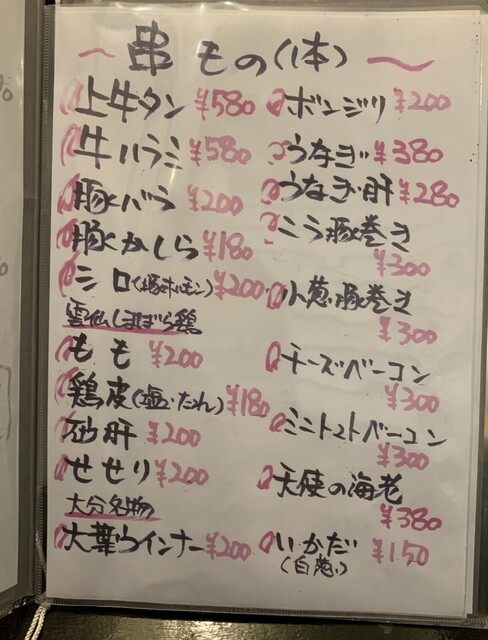 〜 串もの(1本) 〜
上牛タン ¥580
牛ハラミ ¥580
豚バラ ¥200
豚かしら ¥180
シロ(豚ホルモン) ¥200
雲仙しまばら鶏
もも ¥200
鶏皮(塩・たれ) ¥180
砂肝 ¥200
せせり ¥200
大分名物
大葉ウインナー ¥200
ボンジリ ¥200
うなぎ ¥380
うなぎ肝 ¥280
ニラ豚巻き
¥300
小葱豚巻き
¥300
チーズベーコン
¥300
ミニトマトベーコン
¥300
天使の海老
¥380
いかだ ¥150
(白葱)